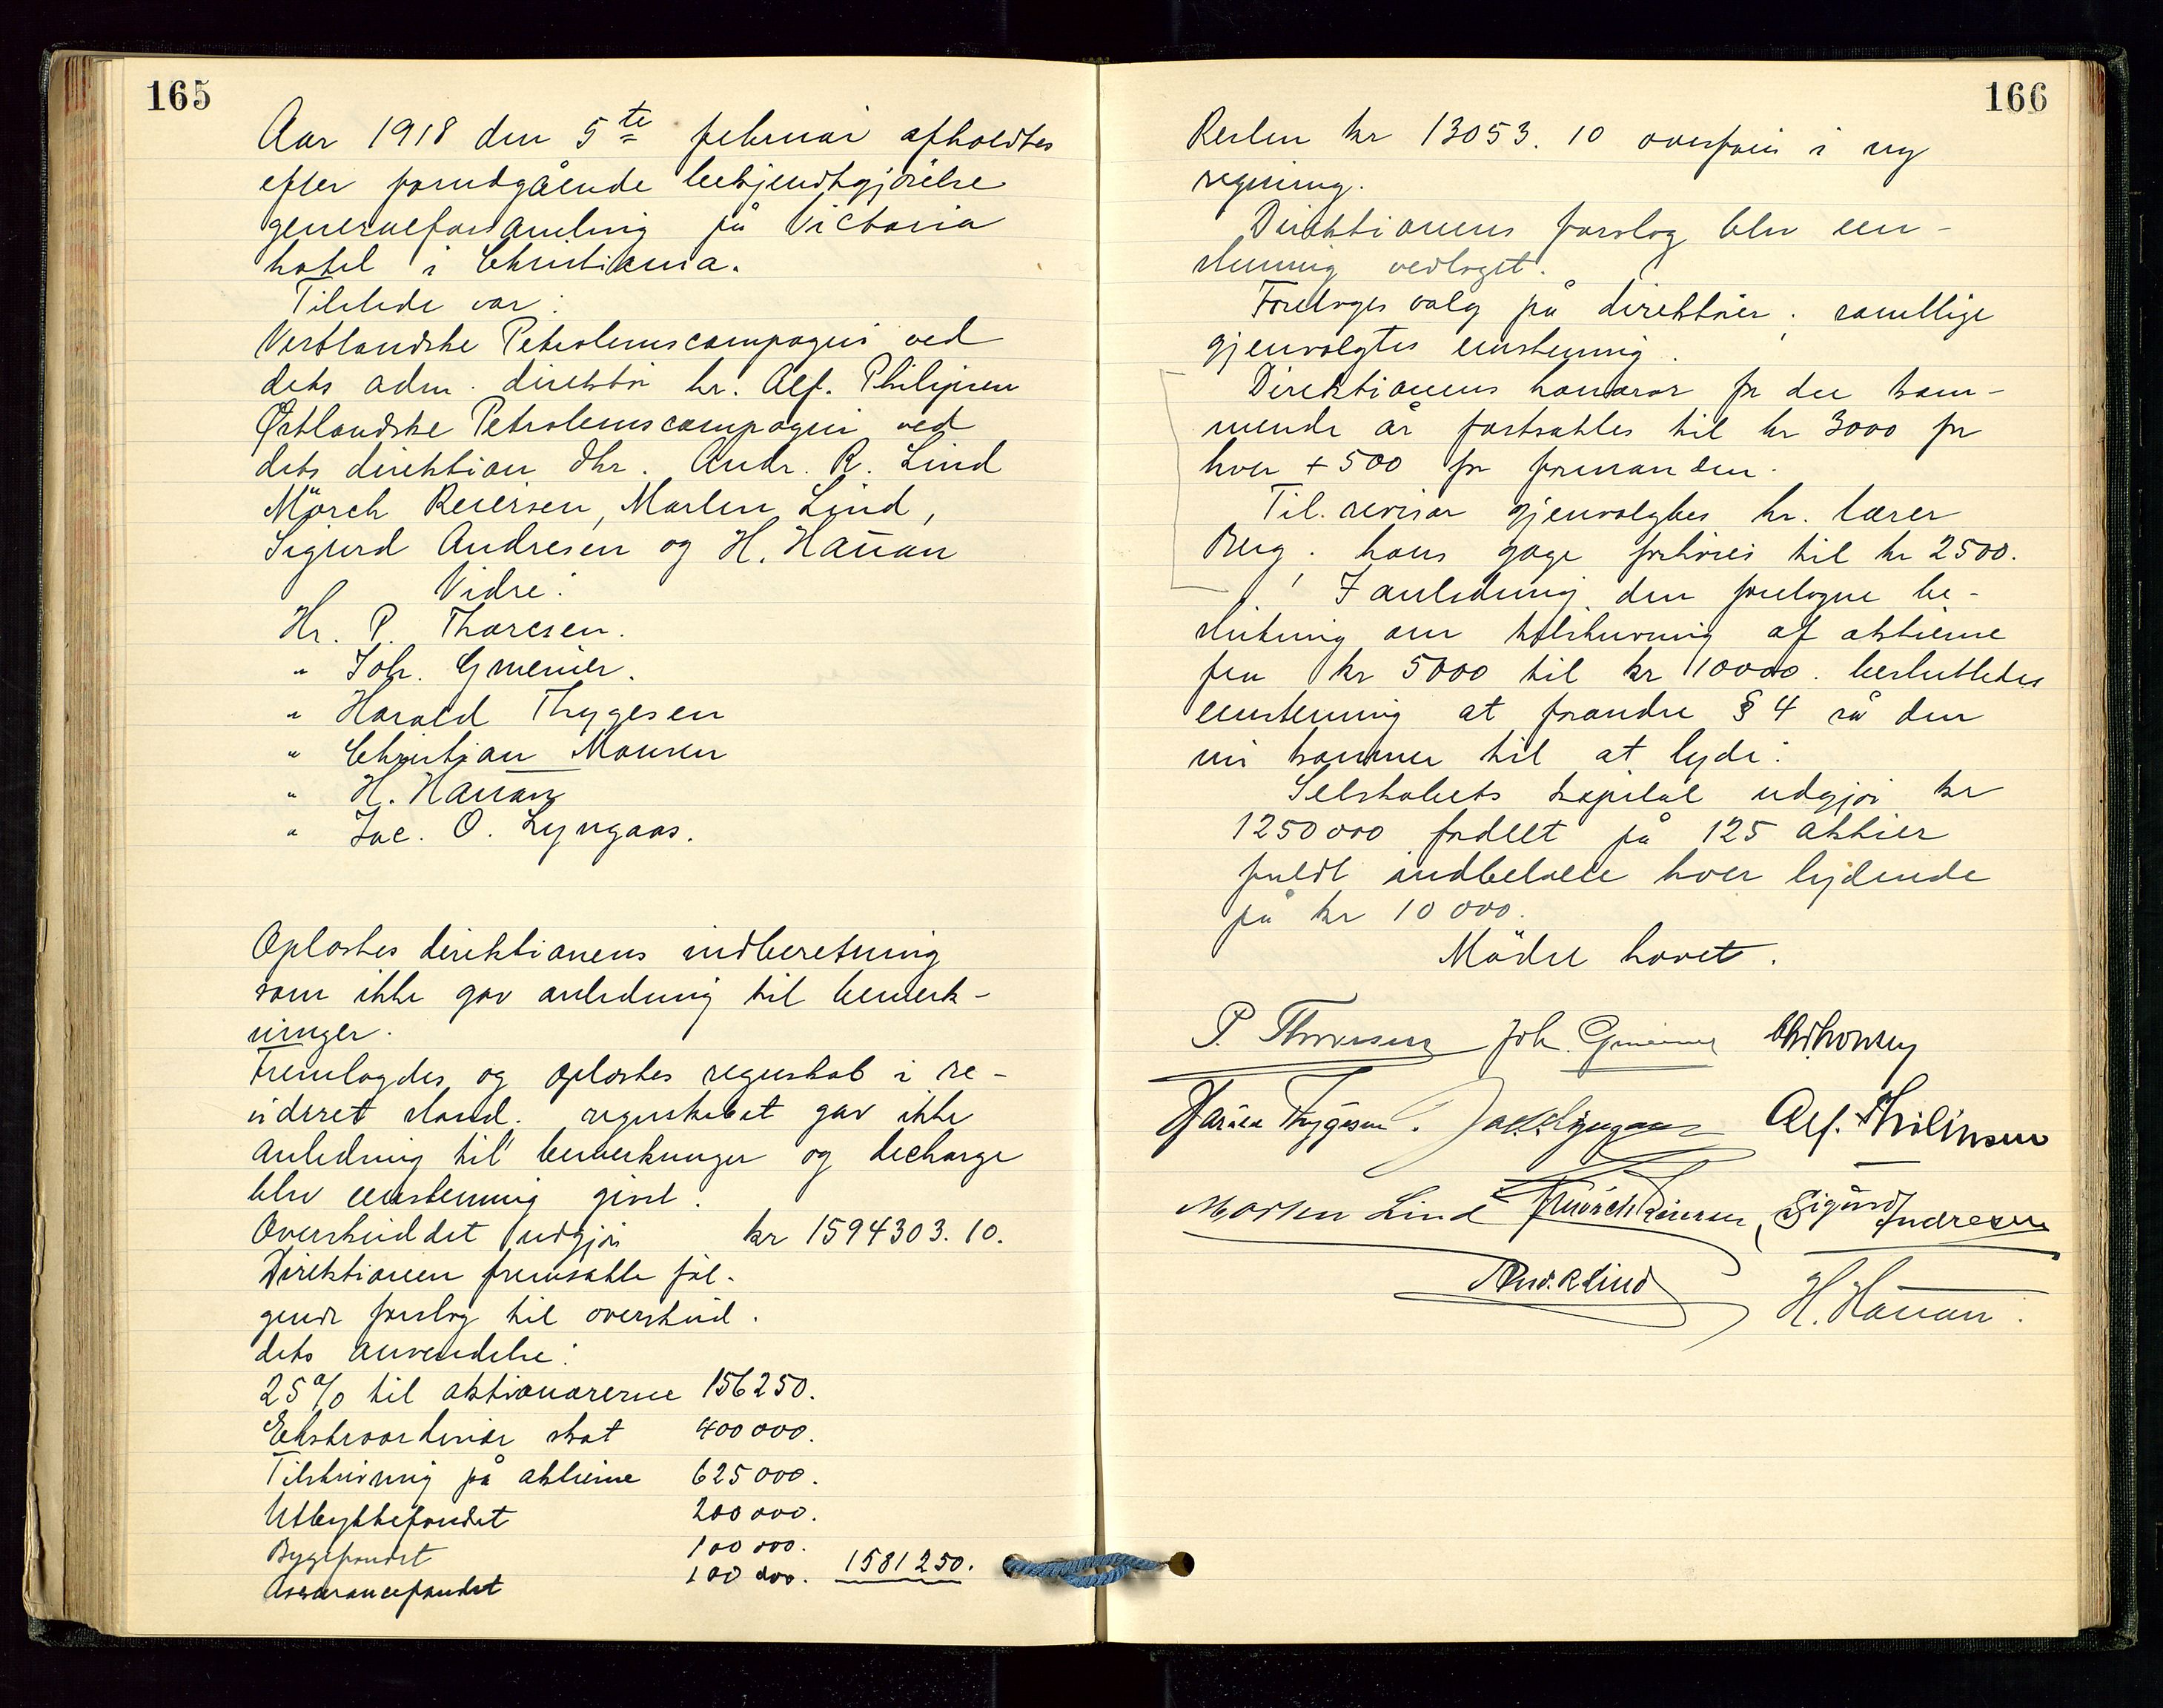 165
Aar 1918 den 5te februar afholdtes
efter forudgående bekjendtgjörelse
generalforsamling på Victoria
hotel i Christiania.
Tilstede var:
Vestlandske Petroleumscompagni ved
dets adm. direktör hr. Alf. Philipsen
Østlandske Petroleumscompagni ved
dets direktion dhr. Andr. R. Lind
Mörch Reiersen, Morten Lind,
Sigurd Andresen og H. Hauan
Vidre:
Hr. P. Thoresen.
" Joh. Gmeiner.
" Harald Thygesen
" Christian Mousen
" H. Hauan
" Jac. O. Lyngaas.
Oplæstes direktionens indberetning
som ikke gav anledning til bemerk-
ninger.
Fremlagdes og oplæstes regnskab i re-
videret stand. regnskabet gav ikke
anledning til bemerkninger og decharge
blev enstemmig givet.
Overskuddet udgjör kr 1594303.10.
Direktionen fremsatte föl-
gende forslag til overskud-
dets anvendelse:
25% til aktionærerne 156250.
Ekstraordinær skat 400000.
Tilskrivning på aktierne 625000.
Utbyttefondet 200000.
Bygefondet 100000.
Assurancefondet 100000. 1581250.
166
Resten kr 13053.10 overföres i ny
regning.
Direktionens forslag blev een-
stemmig vedtaget.
Foretoges valg på direktörer; samtlige
gjenvalgtes enstemmig.
Direktionens honorar for det kom-
mende år fastsattes til kr 3000 for
hver + 500 for formanden.
Til revisor gjenvalgtes hr. lærer
Berg; hans gage forhöies til kr 2500.
I anledning den foretagne be-
slutning om tilskrivning af aktierne
fra kr 5000 til kr 10000. besluttedes
enstemmig at forandre § 4 så den
nu kommer til at lyde:
Selskabets kapital udgjör kr
1250000 fordelt på 125 aktier
fuldt indbetalte hver lydende
på kr 10000.
Mödet hævet.
P. Thoresen Joh. Gmeiner
Harald Thygesen. Jac. O. Lyngaas Alf. Philipsen
Morten Lind J Mörch Reiersen, Sigurd Andresen
Andr. R Lind H. Hauan.